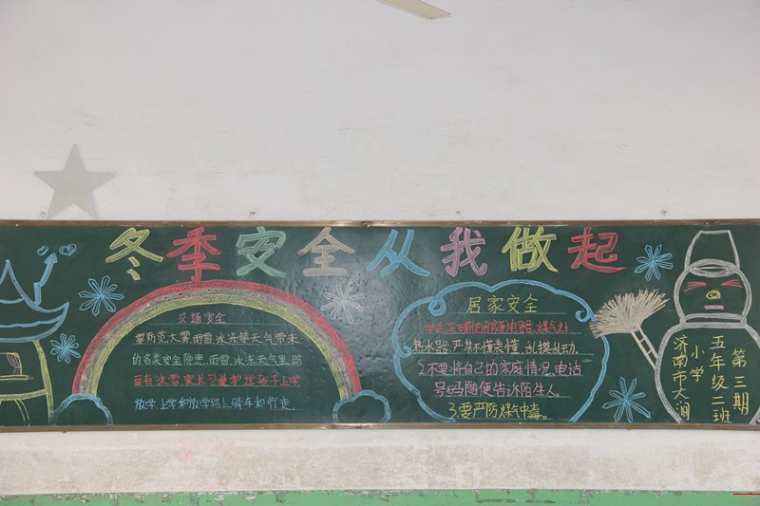 冬季安全从我做起
交通安全
要防范大雾、雨雪、冰冻等天气带来
的各类安全隐患,雨雪、冰冻天气里,路
面有冰雪,家长尽量护送孩子上学
放学,上学和放学路上骑车和行走
居家安全
热水器,严禁不懂装懂,乱摸乱动。
2.不要将自己的家庭情况、电话
号码随便告诉陌生人。
3.要严防煤气中毒。
第三期
五年级二班
小学
济南市大涧